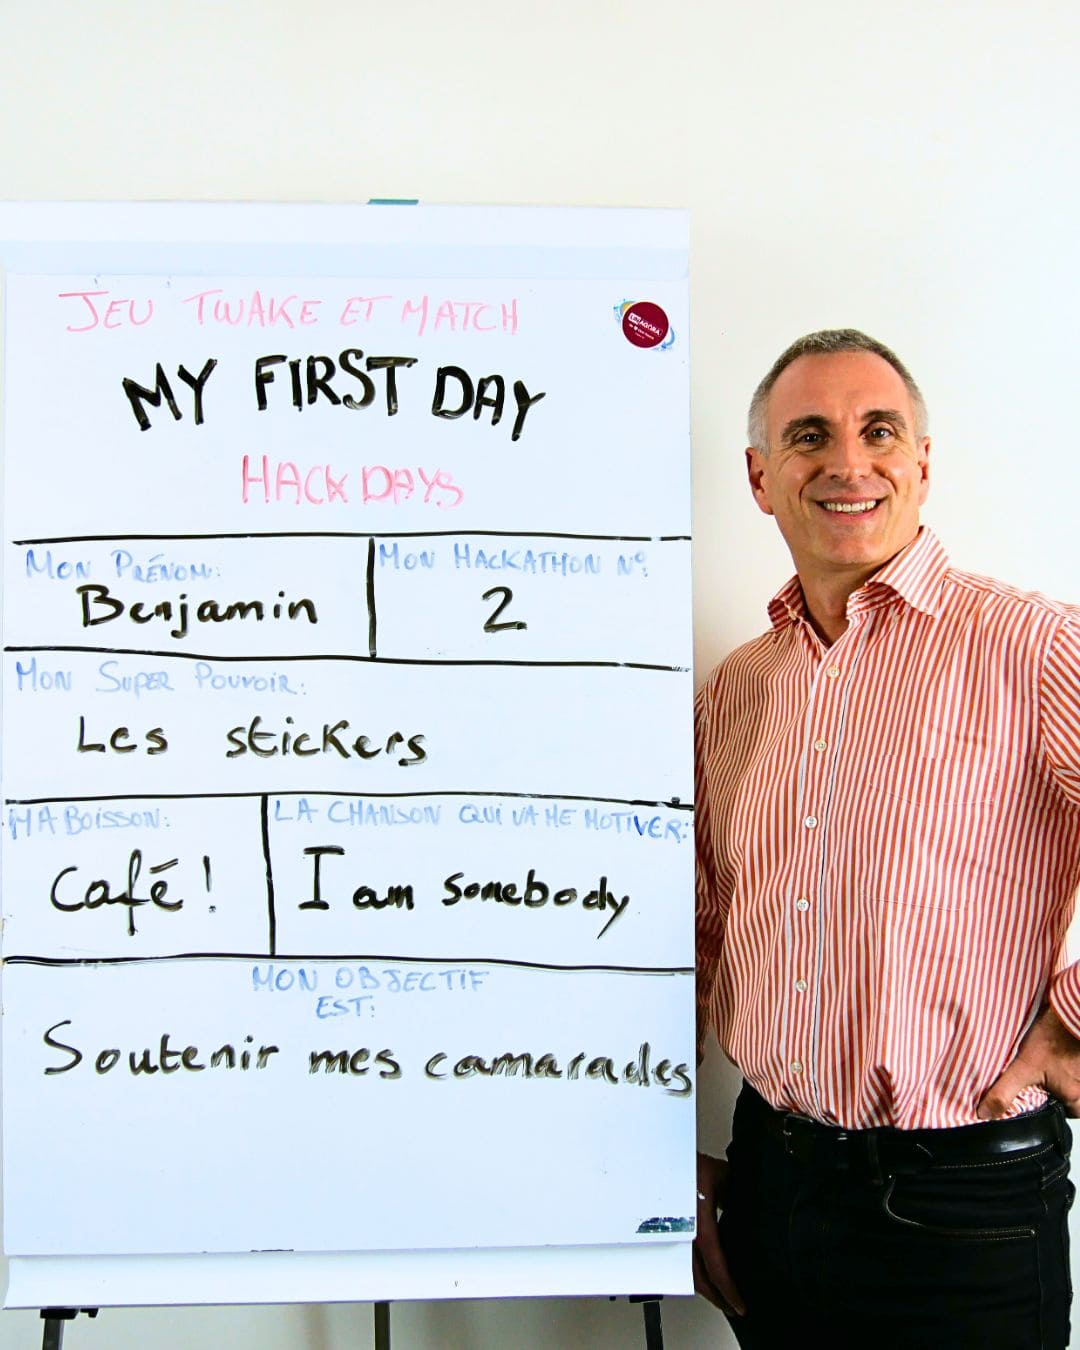 JEU TWAKE ET MATCH
MY FIRST DAY
HACK DAYS
LINAGORA
MON PRÉNOM:
Benjamin
MON HACKATHON N°:
2
MON SUPER POUVOIR:
Les stickers
MA BOISSON:
Café !
LA CHANSON QUI VA ME MOTIVER:
I am somebody
MON OBJECTIF
EST:
Soutenir mes camarades